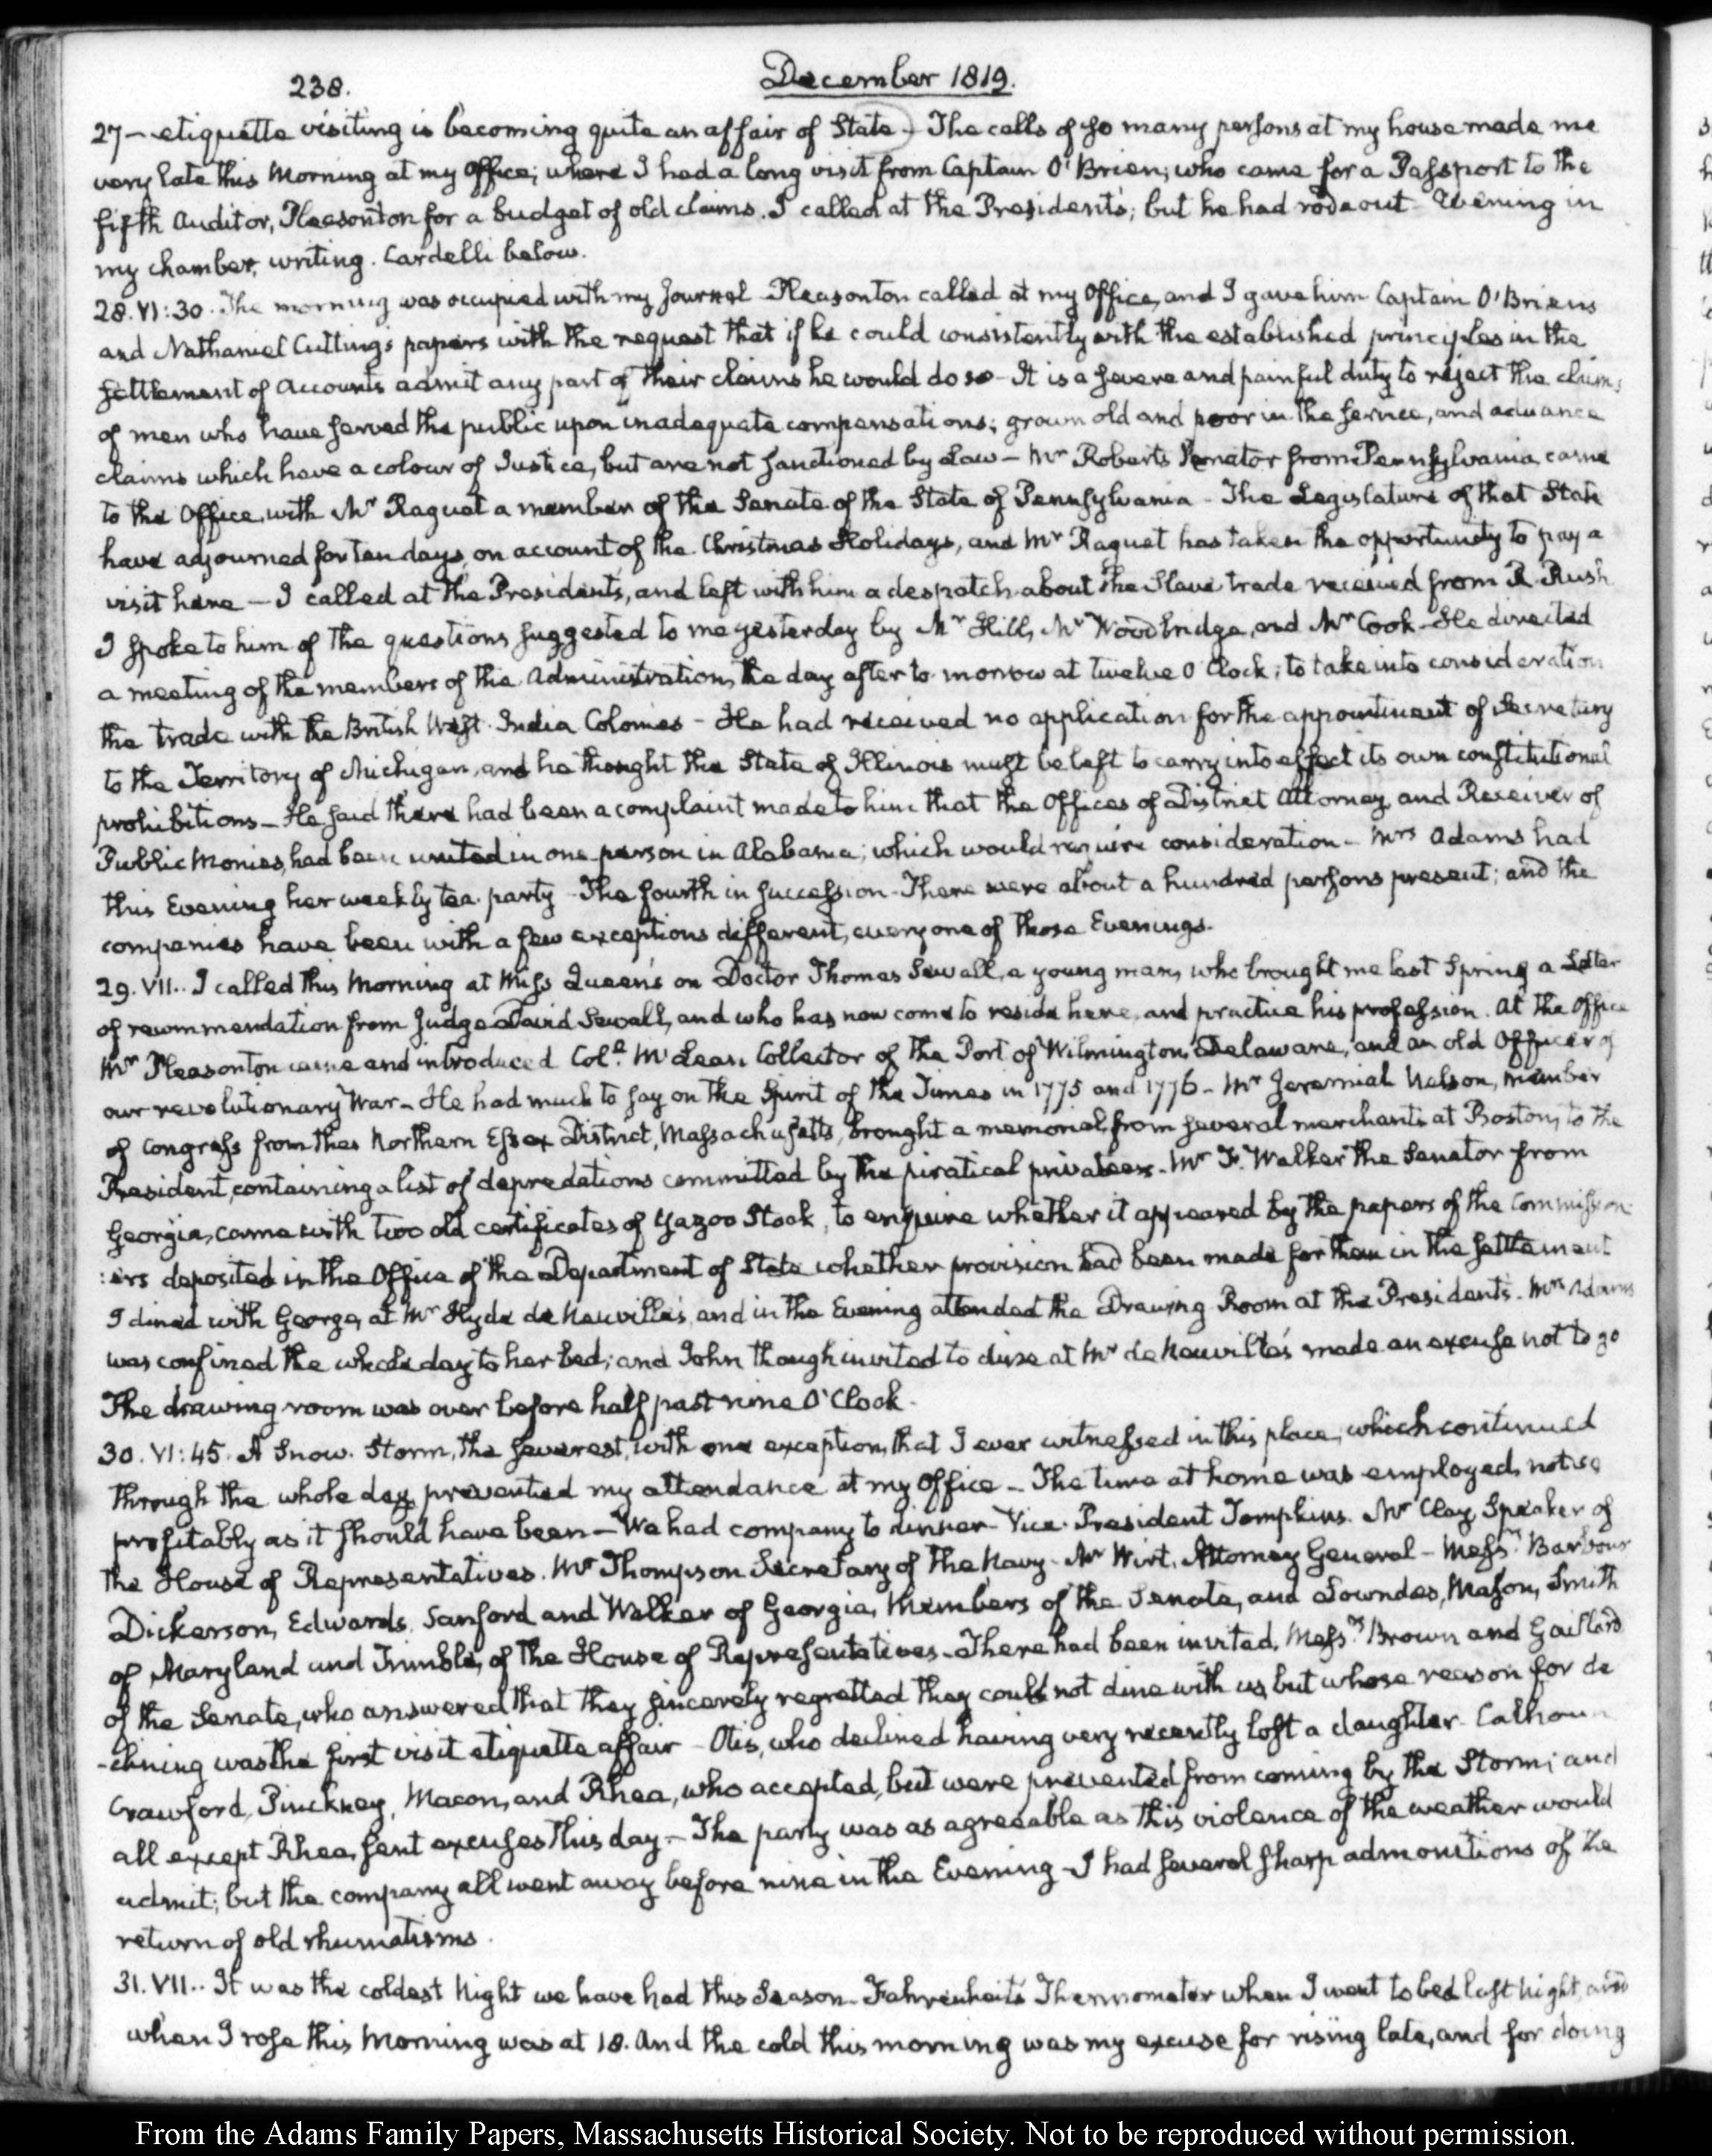 238.
December 1819.
27 — etiquette visiting is becoming quite an affair of State - The calls of so many persons at my house made me
very late this Morning at my Office; where I had a long visit from Captain O'Brien; who came for a Passport to the
fifth Auditor, Pleasonton for a budget of old claims. I called at the President's; but he had rode out - Evening in
my chamber, writing. Cardelli below.
28. VI:30. The morning was occupied with my Journal - Pleasonton called at my Office, and I gave him Captain O'Briens
and Nathaniel Cutting's papers with the request that if he could consistently with the established principles in the
settlement of Accounts admit any part of their claims he would do so - It is a severe and painful duty to reject the claims
of men who have served the public upon inadequate compensations; grown old and poor in the service, and advance
claims which have a colour of Justice, but are not sanctioned by Law — Mr Roberts Senator from Pennsylvania, came
to the Office, with Mr Raguet a member of the Senate of the State of Pennsylvania - The Legislature of that State
have adjourned for ten days, on account of the Christmas Holidays, and Mr Raguet has taken the opportunity to pay a
visit here — I called at the President's, and left with him a despatch about the Slave trade received from R. Rush
I spoke to him of the questions suggested to me yesterday by Mr Hill, Mr Woodbridge, and Mr Cook - He directed
a meeting of the members of the Administration, the day after to-morrow at twelve O'Clock; to take into consideration
the trade with the British West-India Colonies - He had received no application for the appointment of Secretary
to the Territory of Michigan, and he thought the State of Illinois must be left to carry into effect its own constitutional
prohibitions — He said there had been a complaint made to him that the Offices of District Attorney and Receiver of
Public Monies, had been united in one person in Alabama; which would require consideration - Mrs Adams had
this Evening her weekly tea-party - The fourth in succession - There were about a hundred persons present; and the
companies have been with a few exceptions different, every one of those Evenings.
29. VII.. I called this Morning at Miss Queen's on Doctor Thomas Sewall, a young man, who brought me last Spring a Letter
of recommendation from Judge David Sewall, and who has now come to reside here, and practice his profession. At the Office
Mr Pleasonton came and introduced Coll. McLean Collector of the Port of Wilmington, Delaware, and an old Officer of
our revolutionary War - He had much to say on the Spirit of the Times in 1775 and 1776 - Mr Jeremiah Nelson, member
of Congress from the Northern Essex District, Massachusetts, brought a memorial, from several merchants at Boston, to the
President, containing a list of depredations committed by the piratical privateers. Mr F. Walker the Senator from
Georgia, came with two old certificates of Yazoo Stock, to enquire whether it appeared by the papers of the Commission-
:ers deposited in the Office of the Department of State whether provision had been made for them in the settlement
I dined with George, at Mr Hyde de Neuville's, and in the Evening attended the Drawing Room at the President's. Mrs Adams
was confined the whole day to her bed; and John though invited to dine at Mr de Neuville's made an excuse not to go
The drawing room was over before half past nine O'Clock.
30. VI:45. A Snow-Storm, the severest, with one exception, that I ever witnessed in this place, which continued
through the whole day, prevented my attendance at my Office - The time at home was employed, not so
profitably as it should have been — We had company to dinner - Vice-President Tompkins. Mr Clay, Speaker of
the House of Representatives. Mr Thompson Secretary of the Navy - Mr Wirt, Attorney General - Messrs Barbour
Dickerson, Edwards, Sanford and Walker of Georgia, Members of the Senate, and Lowndes, Mason, Smith
of Maryland and Trimble, of the House of Representatives - There had been invited, Messrs Brown and Gaillard
of the Senate, who answered that they sincerely regretted they could not dine with us, but whose reason for de
-clining was the first visit etiquette affair - Otis, who declined having very recently lost a daughter - Calhoun
Crawford, Pinckney, Macon, and Rhea, who accepted, but were prevented from coming by the Storm; and
all except Rhea, sent excuses this day. - The party was as agreeable as this violence of the weather would
admit; but the company all went away before nine in the Evening - I had several sharp admonitions of the
return of old rhumatisms.
31. VII.. It was the coldest Night we have had this Season - Fahrenheit's Thermometer when I went to bed last night, and
when I rose this Morning was at 18. And the cold this morning was my excuse for rising late, and for doing
From the Adams Family Papers, Massachusetts Historical Society. Not to be reproduced without permission.